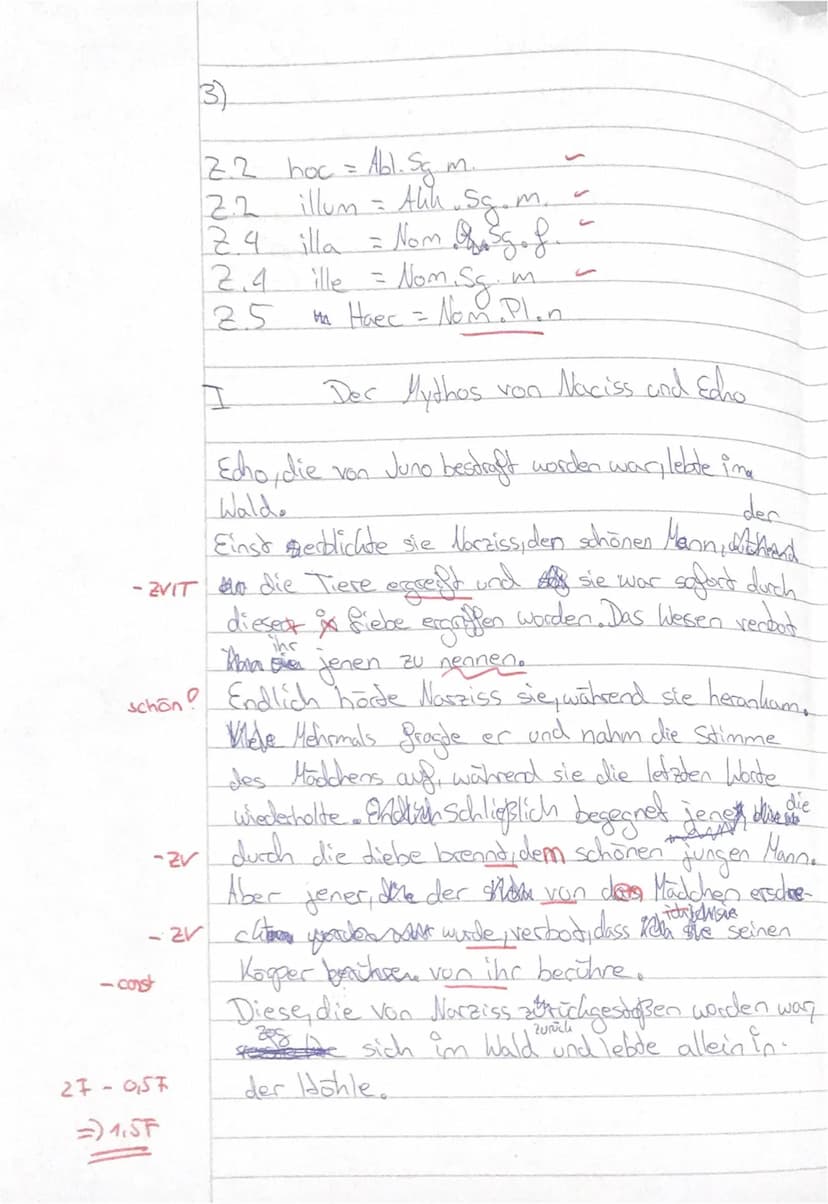 3)
Z.2 hoc = Abl. Sg m.
Z.2 illum = Akk. Sg. m.
Z.4 illa = Nom. Sg. f.
Z.4 ille = Nom. Sg. m
Z.5 Haec = Nom. Pl. n
I Der Mythos von Naciss und Echo
Echo, die von Juno bestraft worden war, lebte im
Wald.
Einst erblickte sie Narziss, den schönen Mann, der
- ZVIT die Tiere ergreift und sie war sofort durch
dieser Liebe ergriffen worden. Das Wesen verbot
ihr jenen zu nennen.
schön? Endlich hörte Narziss sie, während sie herankam.
Mehrmals fragte er und nahm die Stimme
des Mädchens auf, während sie die letzten Worte
wiederholte. Schließlich begegnet jene, die
- ZV durch die Liebe brennt, dem schönen jungen Mann.
Aber jener, der von dem Mädchen erschre-
- ZV wurde, verbot, dass sie seinen
- const Körper von ihr berühre.
Diese, die von Narziss zurückgestoßen worden war,
zog sich im Wald zurück und lebte allein in
2F - 0,5F der Höhle.
=> 1,5F